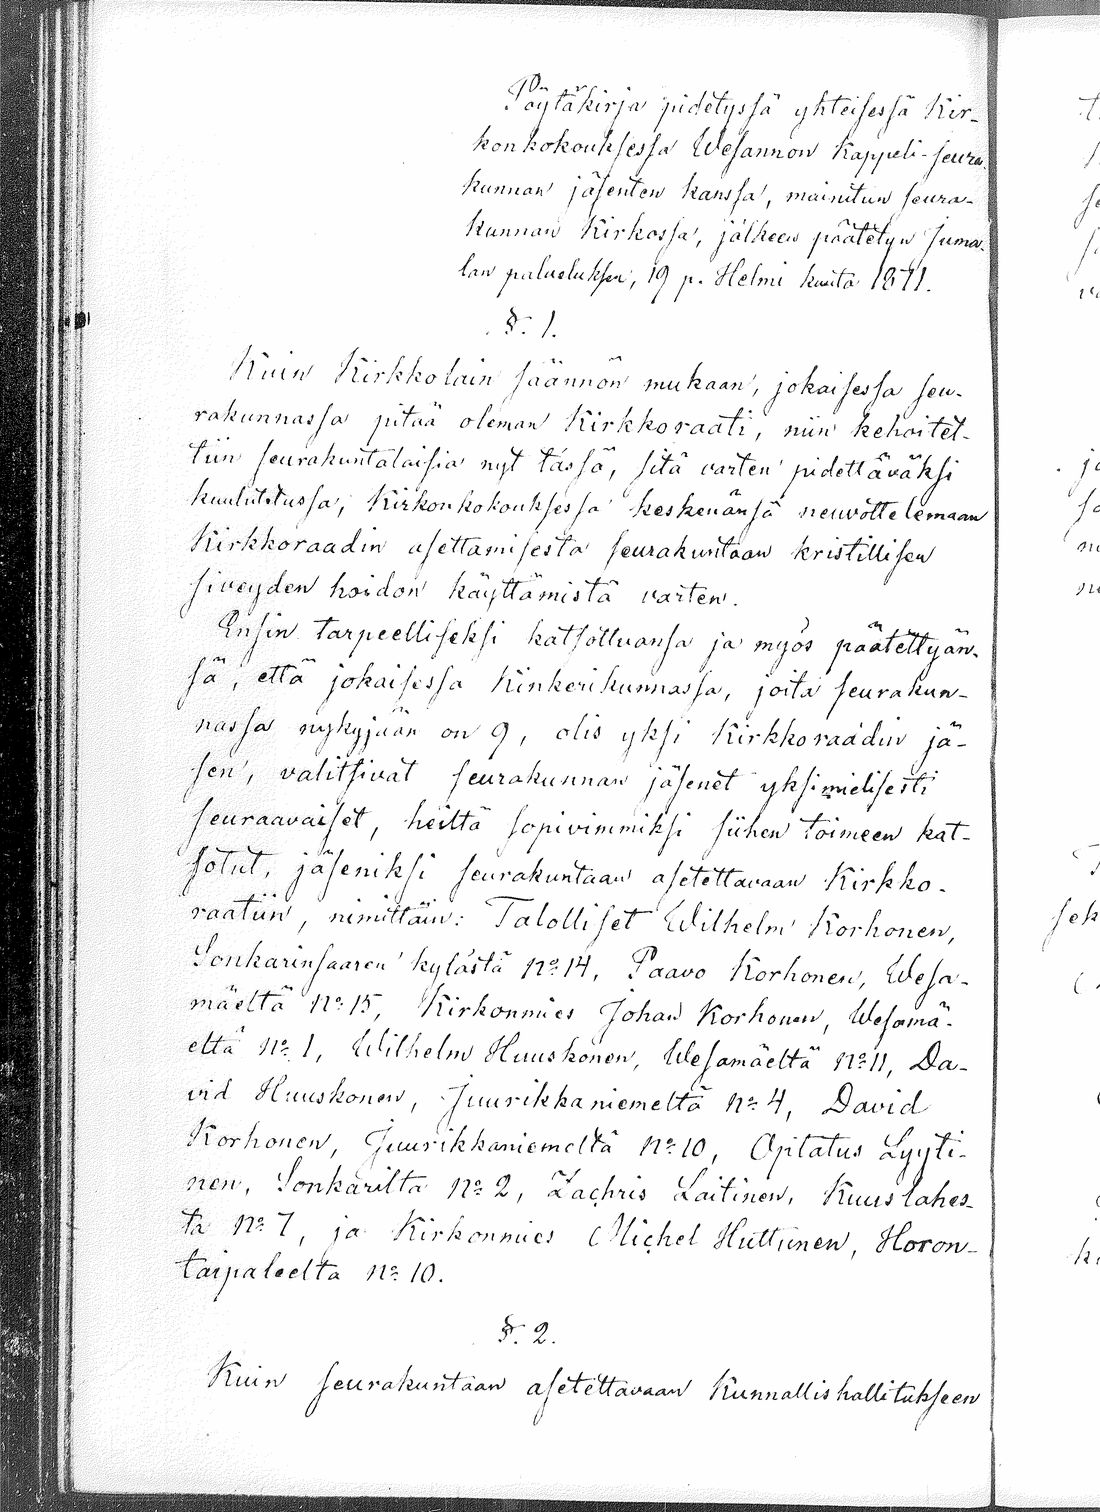 Pöytäkirja pidetyssä yhteisessä Kir-
konkokouksessa Wesannon Kappeli-seura-
kunnan jäsenten kanssa, mainitun seura-
kunnan Kirkossa, jälkeen päätetyn Juma-
lan palveluksen, 19 p. Helmi kuuta 1871.
§. 1.
Kuin Kirkkolain säännön mukaan, jokaisessa seu-
rakunnassa pitää oleman Kirkkoraati, niin kehoitet-
tiin seurakuntalaisia nyt tässä, sitä varten pidettäväksi
kuulutetussa, Kirkonkokouksessa keskenänsä neuvottelemaan
Kirkkoraadin asettamisesta seurakuntaan kristillisen
siveyden hoidon käyttämistä varten.
Ensin tarpeelliseksi katsottuansa ja myös päätettyän-
sä, että jokaisessa Kinkerikunnassa, joita seurakun-
nassa nykyjään on 9, olis yksi Kirkkoraadin jä-
sen, valitsivat seurakunnan jäsenet yksimielisesti
seuraavaiset, heiltä sopivimmiksi siihen toimeen kat-
sotut, jäseniksi seurakuntaan asetettavaan Kirkko-
raatiin, nimittäin: Talolliset Wilhelm Korhonen,
Sonkarinsaaren kylästä No 14, Paavo Korhonen, Wesa-
mäeltä No 15, Kirkonmies Johan Korhonen, Wesamä-
eltä No 1, Wilhelm Huuskonen, Wesamäeltä No 11, Da-
vid Huuskonen, Juurikkaniemeltä No 4, David
Korhonen, Juurikkaniemeltä No 10, Opitatus Lyyti-
nen, Sonkarilta No 2, Zachris Laitinen, Kuuslahes-
ta No 7, ja Kirkonmies Michel Huttunen, Horon-
taipaleelta No 10.
§. 2.
Kuin seurakuntaan asetettavaan Kunnallishallitukseen